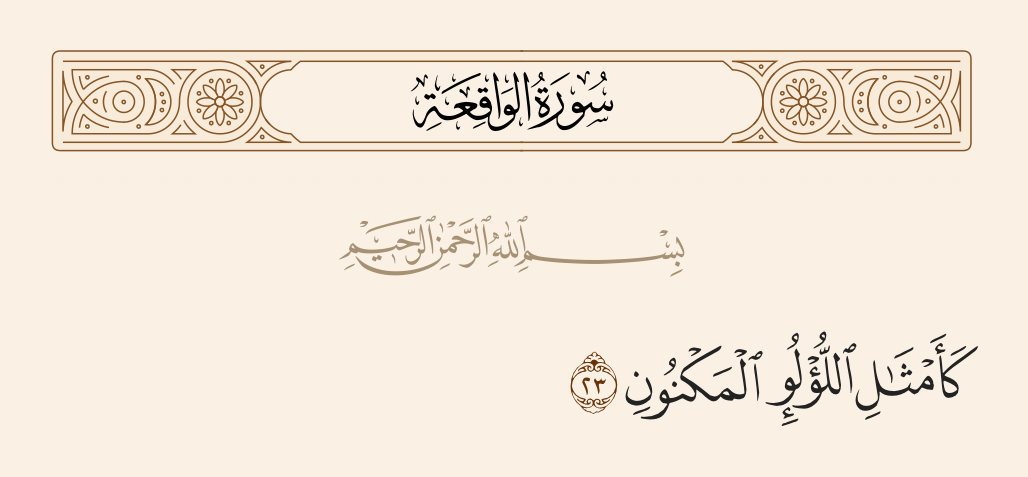 سُورَةُ الوَاقِعَةِ
بِسْمِ ٱللَّهِ ٱلرَّحْمَٰنِ ٱلرَّحِيمِ
كَأَمْثَـٰلِ ٱللُّؤْلُؤِ ٱلْمَكْنُونِ ٢٣